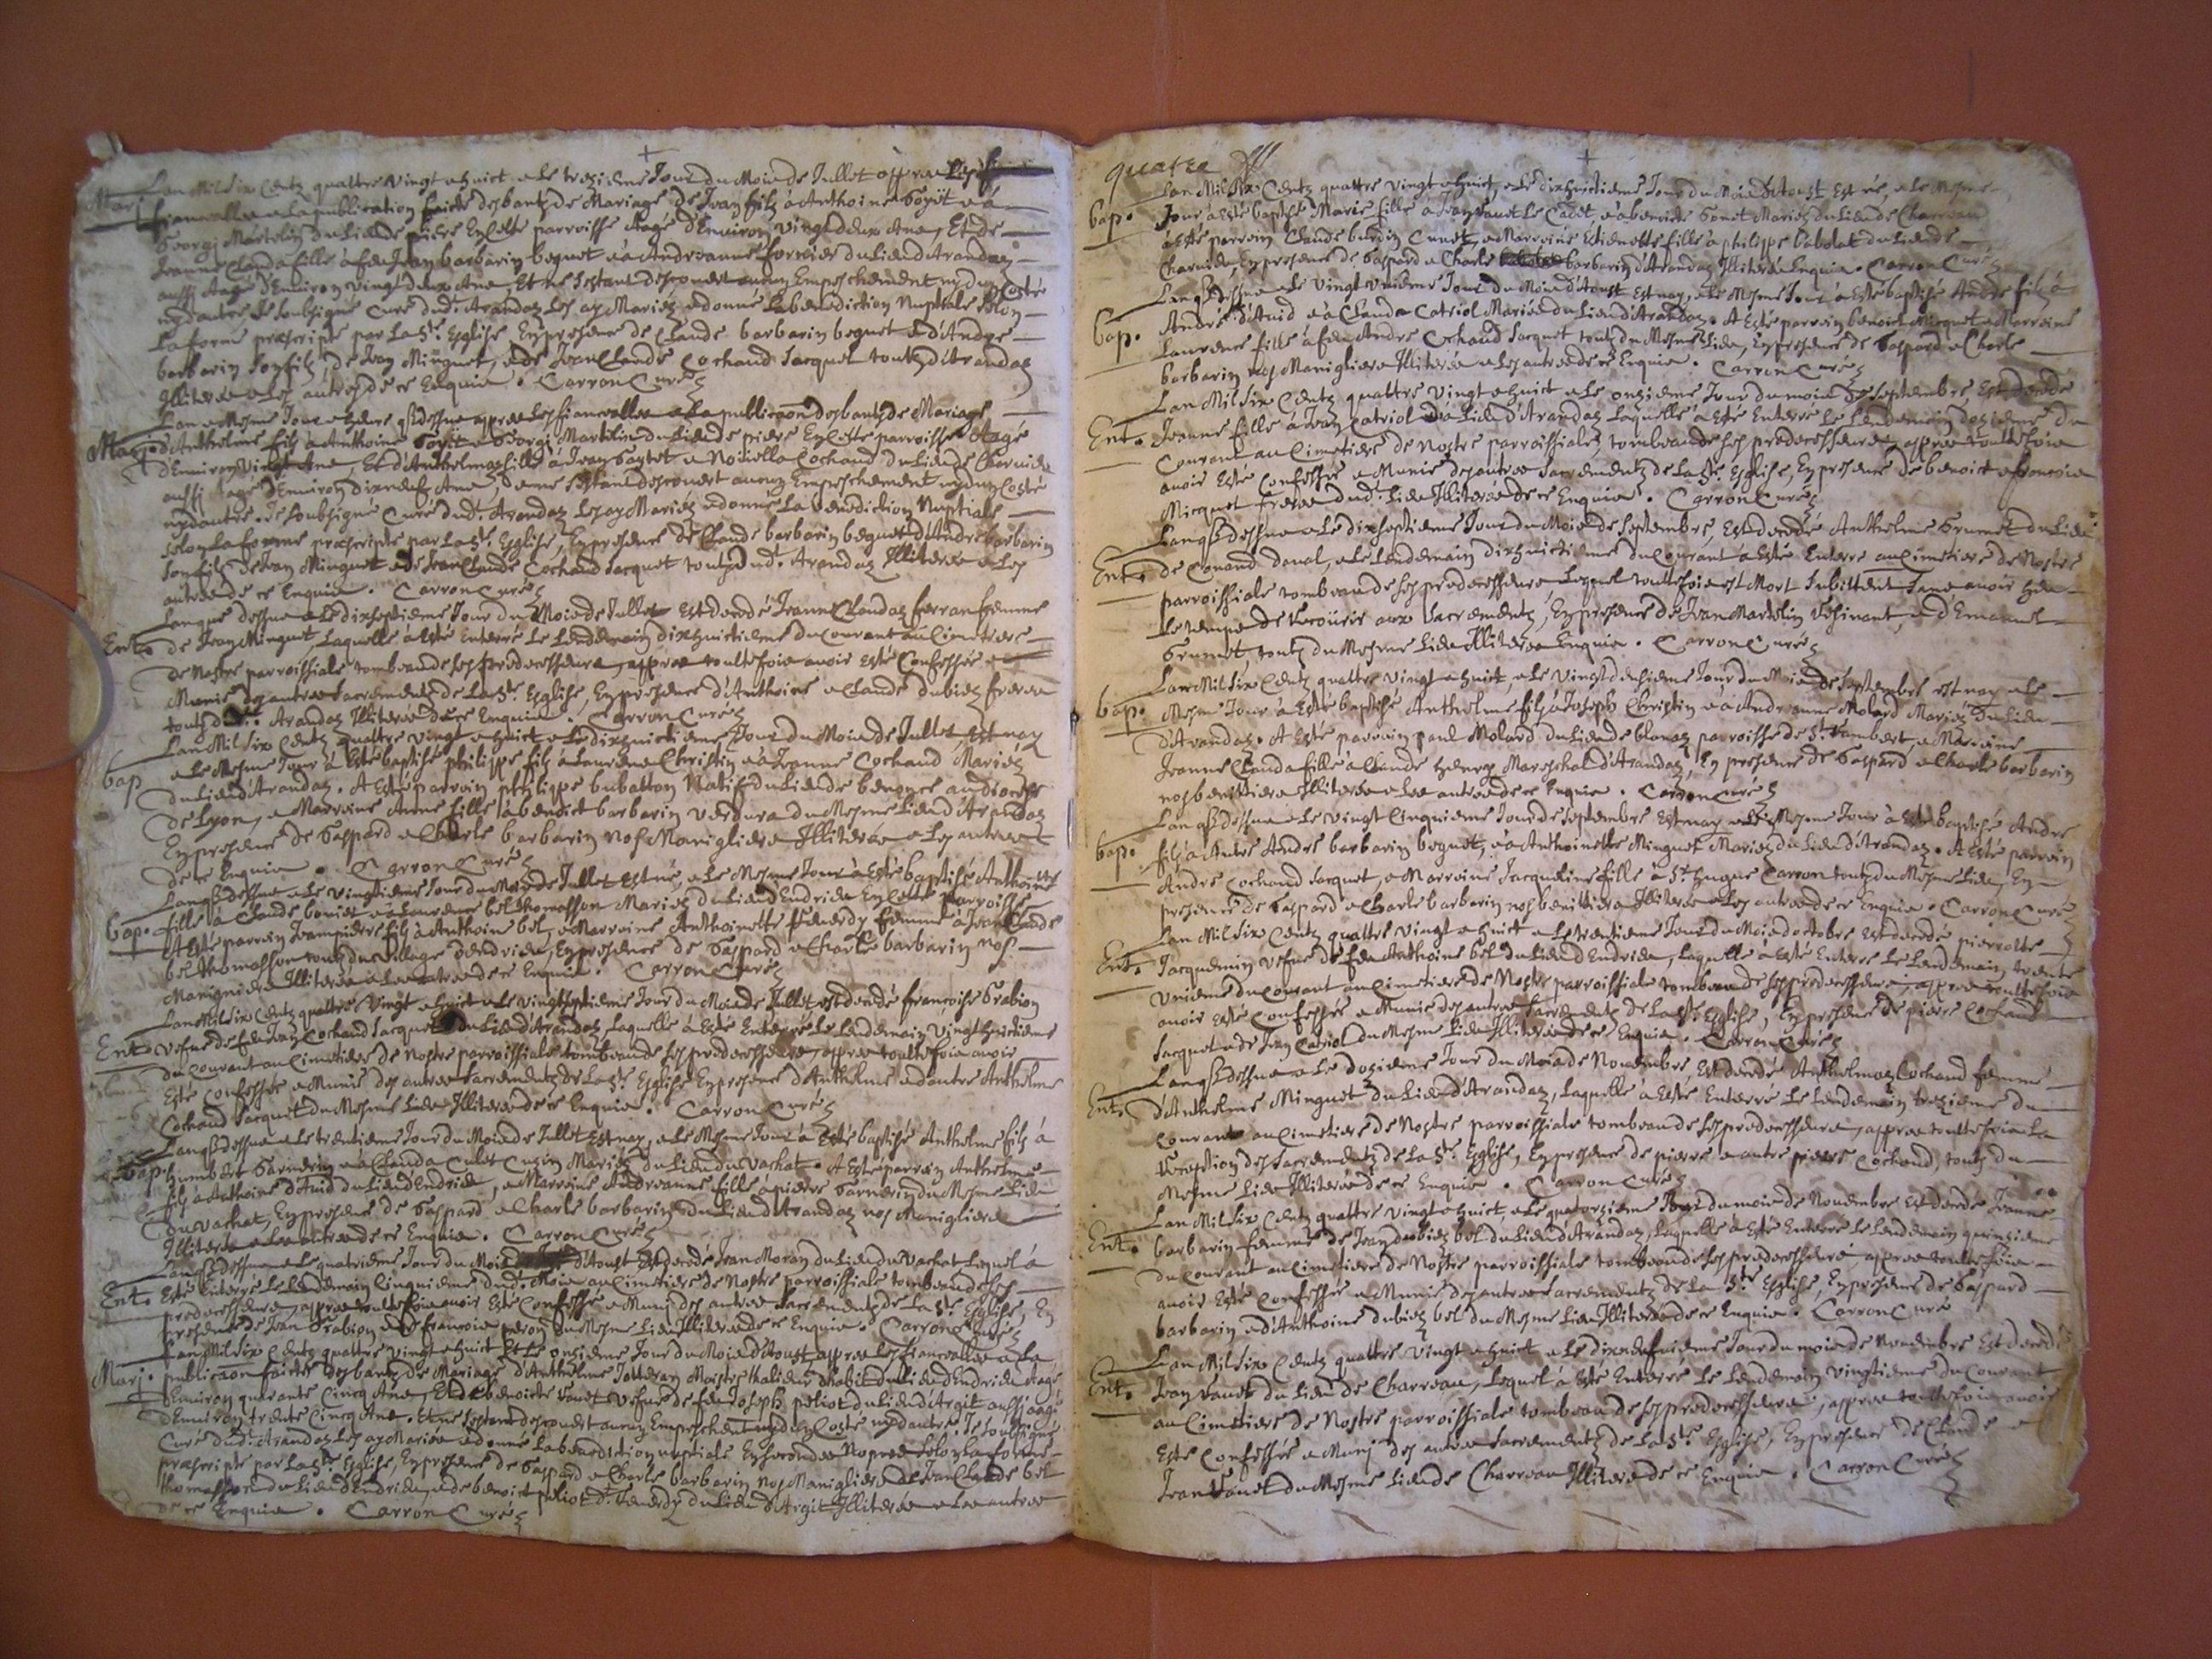 Lan Mil Six Centz quattre Vingt et huict et le treziesme Jour du Mois de Juillet appres les
Mar. fiancealles et la publication faicte des bantz de Mariage de Jean filz à Anthoine Goyët et à
Georgi Martelin du Lieu de pierre En cette parroisse Aagé d'Environ Vingt deux Ans, Et de
Jeanne Clauda fille à feu Jean barbarin begnet et à Andréanne fornier du Lieu d'Arandaz
aussi Aagé d'Environ Vingt deux Ans, Et ne s'estant descouvert aucun Empeschement ny d'un Costé
ny d'autre, Je Soubsigné Curé dud. Arandaz Les ay Mariez et donné La benediction Nuptiale selon
La forme præscripte par La Ste Esglise En presence de Claude barbarin begnet et d'André
barbarin Son filz, de Jean Minguet, et de Jean Claude Cochand Jacquet toutz d'Arandaz
Illiterés et Les autres de ce Enquis. Carron Curé
Lan et Mesme Jour et heure q dessus appres Les fiancealles et La publicaon des bantz de Mariage
Mar. d'Anthelme filz à Anthoine Goyët et Georgi Martelin du Lieu de pierre En cette parroisse Aagé
d'Environ Vingt Ans, Et d'Anthelmaz fille à Jean Goytet et Noëlla Cochand du Lieu de Charvieu
aussi Aagé d'Environ dixneuf Ans, et ne s'estant descouvert aucun Empeschement ny d'un Costé
ny d'autre. Je Soubsigné Curé dud. Arandaz Les ay Mariez et donné La benediction Nuptiale
selon La forme præscripte par La Ste Esglise, En presence de Claude barbarin begnet d'André barbarin
son filz de Jean Minguet et de Jean Claude Cochand Jacquet toutz dud. Arandaz Illiterés et Les
autres de ce Enquis. Carron Curé
Lan que dessus et Le dixseptiesme Jour du Mois de Juillet Est decedé Jeanne Claudaz ferran femme
Ent. de Jean Minguet, Laquelle à Esté Enterré Le Lendemain dixhuictiesme du courant au Cimetiere
de Nostre parroissiale tombeau de ses predecesseurs, appres touttefois avoir Esté Confessée et
Munie des autres Sacrementz de La Ste Esglise, En presence d'Anthoine et Claude dubiez freres
toutz d. Arandaz Illiterés de ce Enquis. Carron Curé
Lan Mil Six Centz quattre Vingt et huict et Le dixhuictiesme Jour du Mois de Juillet, Est nay
bap. et Le Mesme Jour à Esté baptisé philippe filz à Laurens Christin et à Jeanne Cochand Mariez
du Lieu d'Arandaz. A Esté parrain philippe bubatton Natif du Lieu de benonce au diocese
de Lyon, et Marraine Anne fille à benoict barbarin Verdura du Mesme Lieu d'Arandaz
En presence de Gaspard et Charle barbarin Nos Manigliers Illiterés et Les autres
de ce Enquis. Carron Curé
Lan q dessus et Le Vingtiesme Jour du Mois de Juillet Est née, et Le Mesme Jour à Esté baptisé Anthoinette
bap. fille à Claude bouvier et à Laurence bel thomasson Mariez du Lieu d'Indrieu En cette Parroisse
A Esté parrain Jeanpierre filz à Anthoine bel, et Marraine Anthoinette femme à Jean Claude
bel thomasson toutz du Village d'Indrieu, En presence de Gaspard et Charle barbarin nos
Manigliers Illiterés et Les autres de ce Enquis. Carron Curé
Lan Mil Six Centz quattre Vingt et huict et Le Vingtseptiesme Jour du Mois de Juillet est decedé françoise Grabion
Ent. Vefve de feu Jean Cochand Jacquet du Lieu d'Arandaz, Laquelle à Esté Enterré Le Lendemain Vingthuictiesme
du courant au Cimetiere de nostre parroissiale tombeau de ses predecesseurs, appres touttefois avoir
Esté Confessée et Munie des autres Sacrementz de La Ste Esglise En presence d'Anthelme et d'autre Anthelme
Cochand Jacquet du Mesme Lieu Illiterés de ce Enquis. Carron Curé
Lan q dessus et Le trentiesme Jour du Mois de Juillet Est nay, et Le Mesme Jour à Esté baptisé Anthelme filz à
bap. humbert Garnerin et à Clauda Culet Cusin Mariez du Lieu du Vachat. A Esté parrain Anthelme
filz à Anthoine d'Avid du Lieu d'Indrieu, et Marraine Andréanne fille à pierre Garnerin du Mesme Lieu
du Vachat, En presence de Gaspard et Charle barbarin du Lieu d'Arandaz nos Manigliers
Illiterés et Les autres de ce Enquis. Carron Curé
Lan q dessus et Le quatriesme Jour du Mois d'Aoust Est decedé Jean Moran du Lieu du Vachat Lequel à
Ent. Esté Enterré Le Lendemain Cinquiesme dud. Mois au Cimetiere de Nostre parroissiale tombeau de ses
predecesseurs, appres touttefois avoir Esté Confessé et Muni des autres Sacrementz de La Ste Esglise, En
presence de Jean Grabion et de françois peron du Mesme Lieu Illiterés de ce Enquis. Carron Curé
Lan Mil Six Centz quattre Vingt et huict Et Le onziesme Jour du Mois d'Aoust, appres Les fiancealles et La
Mar. publicaon faicte des bantz de Mariage d'Anthelme Jotteran Maistre tailleur d'habit du Lieu d'Indrieu Aagé
d'Environ quarante Cinq Ans, Et de benoicte Vanet Vefve de feu Joseph peliot du Lieu d'Argit aussi aagé
d'Environ trente Cinq Ans. Et ne s'estant descouvert aucun Empeschement ny d'un Costé ny d'autre. Je Soubsigné
Curé dud. Arandaz Les ay Mariés et donné La benediction nuptiale En secondes Nopces Selon La forme
præscripte par La Ste Esglise, En presence de Gaspard et Charle barbarin Nos Manigliers et de Jean Claude bel
thomasson du Lieu d'Indrieu, et de benoict peliot du Lieu d'Argit Illiterés et Les autres
de ce Enquis. Carron Curé
quatre
Lan Mil Six Centz quattre Vingt et huict, et Le dixhuictiesme Jour du Mois d'Aoust Est née, et Le Mesme
bap. Jour à Esté baptisé Marie fille à Jean Vanet Le Cadet, et à benoicte Bonet Mariez du Lieu de Charveau
à Esté parrain Claude burdin Cunet, et Marraine Estiennette fille à philippe babolat du Lieu de
Charvieu, En presence de Gaspard et Charle barbarin d'Arandaz Illiterés Enquis. Carron Curé
Lan q dessus et Le Vingt Uniesme Jour du Mois d'Aoust Est nay, et Le Mesme Jour à Esté baptisé André filz à
bap. André d'Avid et à Clauda Catriol Mariés du Lieu d'Arandaz. A Esté parrain benoict Micquet et Marraine
Laurence fille à feu André Cochand Jacquet toutz du Mesme Lieu, En presence de Gaspard et Charle
barbarin nos Manigliers Illiterés et Les autres de ce Enquis. Carron Curé
Lan Mil Six Centz quattre Vingt et huict et Le onziesme Jour du mois de Septembre, Est decedé
Ent. Jeanne fille à Jean Catriol du Lieu d'Arandaz Laquelle à Esté Enterré Le Lendemain doziesme du
Courant au Cimetiere de Nostre parroissiale tombeau de ses predecesseurs, appres touttefois
avoir Esté Confessée et Munie des autres Sacrementz de La Ste Esglise, En presence de benoict et françois
Micquet freres dud. Lieu Illiterés de ce Enquis. Carron Curé
Lan q dessus et Le dixseptiesme Jour du Mois de Septembre, Est decedé Anthelme Grumet du Lieu
Ent. de Conand daval, et Le Lendemain dixhuictiesme du Courant à Esté Enterré au Cimetiere de Nostre
parroissiale tombeau de ses predecesseurs Lequel touttefois est Mort Subittement Sans avoir heu
Le temps de recourir aux Sacrementz, En presence de Jean Martelin, et d'Emanuel
Grumet, toutz du Mesme Lieu Illiterés Enquis. Carron Curé
Lan Mil Six Centz quattre Vingt et huict, et Le Vingt deusiesme Jour du Mois de Septembre est nay et Le
bap. Mesme Jour à Esté baptisé Anthelme filz à Joseph Christin et à Andréanne Molard Mariez du Lieu
d'Arandaz. A Esté parrain paul Molard du Lieu de blanaz parroisse de St Rambert, et Marraine
Jeanne Clauda fille à Claude henry Mareschal d'Arandaz, En presence de Gaspard et Charle barbarin
nos benittiers Illiterés et Les autres de ce Enquis. Carron Curé
Lan q dessus et Le Vingt Cinquiesme Jour de Septembre Est nay et Le Mesme Jour à Esté baptisé André
bap. filz à Autre André barbarin begnet, et à Anthoinette Minguet Mariez du Lieu d'Arandaz. A Esté parrain
André Cochand Jacquet, et Marraine Jacqueline fille à Sr hugue Carron toutz du Mesme Lieu, En
presence de Gaspard et Charle barbarin nos benittiers Illiterés et Les autres de ce Enquis. Carron Curé
Lan Mil Six Centz quattre Vingt et huict et Le trentiesme Jour du Mois d'octobre Est decedé pierrotte
Ent. Jacquemin Vefve de feu Anthoine bel du Lieu d'Indrieu, Laquelle à Esté Enterré Le Lendemain trente
Uniesme du Courant au Cimetiere de Nostre parroissiale tombeau de ses predecesseurs, appres touttefois
avoir Esté Confessée et Munie des autres Sacrementz de La Ste Esglise, En presence de pierre Cochand
Jacquet et de Jean Catriol du Mesme Lieu Illiterés de ce Enquis. Carron Curé
Lan q dessus et Le doziesme Jour du Mois de Novembre Est decedé Anthelmaz Cochand femme
Ent. d'Anthelme Minguet du Lieu d'Arandaz, Laquelle à Esté Enterré Le Lendemain treziesme du
Courant au Cimetiere de Nostre parroissiale tombeau de ses predecesseurs, appres touttefois La
reception des Sacrementz de La Ste Esglise, En presence de pierre et autre pierre Cochand, toutz du
Mesme Lieu Illiterés de ce Enquis. Carron Curé
Lan Mil Six Centz quattre Vingt et huict, et Le quatorziesme Jour du mois de Novembre Est decedé Jeanne
Ent. barbarin femme de Jean dubiez bel du Lieu d'Arandaz, Laquelle à Esté Enterré Le Lendemain quinziesme
du Courant au Cimetiere de Nostre parroissiale tombeau de ses predecesseurs appres touttefois
avoir Esté Confessée et Munie des autres Sacrementz de La Ste Esglise, En presence de Gaspard
barbarin et d'Anthoine dubiez bel du Mesme Lieu Illiterés de ce Enquis. Carron Curé
Lan Mil Six Centz quattre Vingt et huict et Le dixneufviesme Jour du mois de Novembre Est decedé
Ent. Jean Vanet du Lieu de Charveau, Lequel à Esté Enterré Le Lendemain Vingtiesme du Courant
au Cimetiere de Nostre parroissiale tombeau de ses predecesseurs, appres touttefois avoir
Esté Confessé et Muni des autres Sacrementz de La Ste Esglise, En presence de Claude et
Jean Vanet du Mesme Lieu de Charveau Illiterés de ce Enquis. Carron Curé